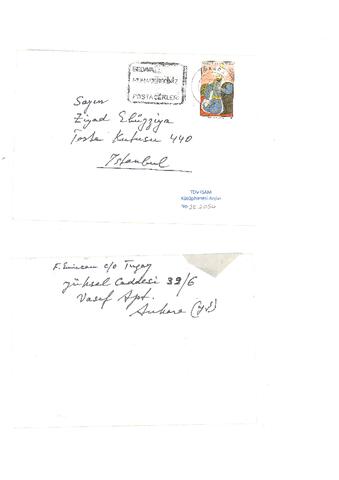 POSTACILERİ
Sayın
Ziyad Ebüzziya
Posta Kutusu 440
Istanbul
TDV İSAM
Kütüphanesi Arşivi
No
c/o Tugay
Yüksel Caddesi 39/6
Vasıf Apt.
Ankara